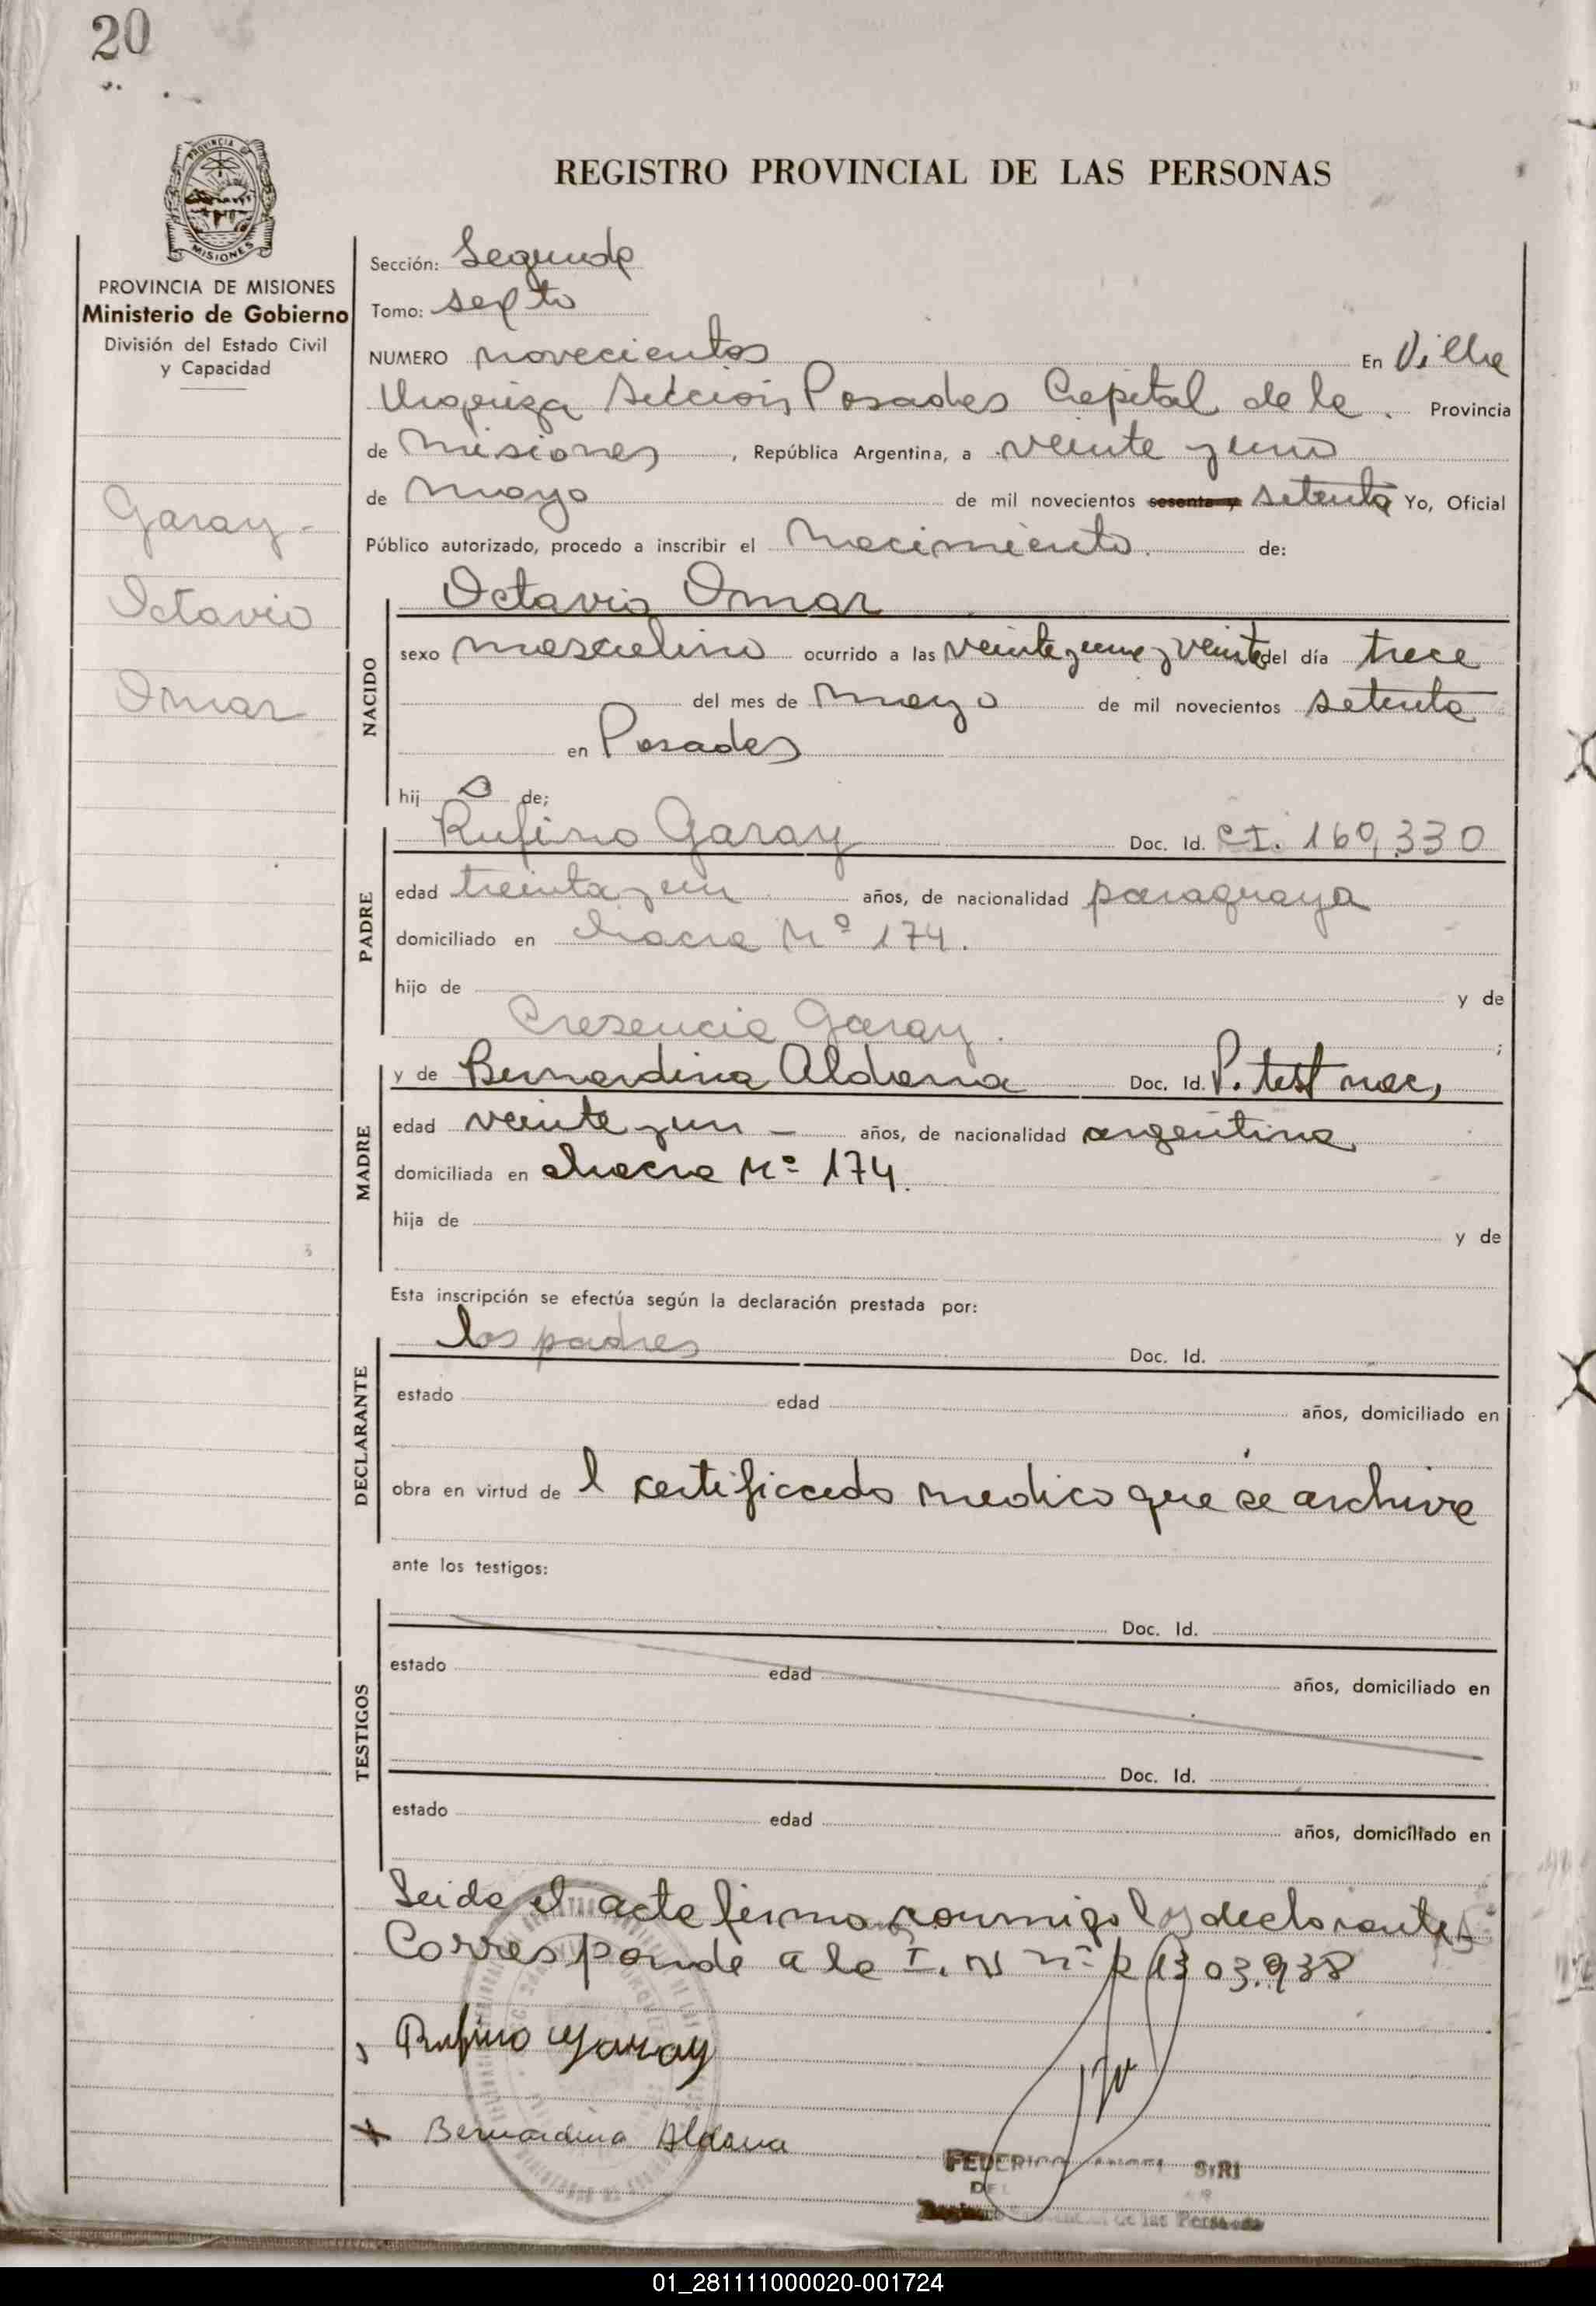 20
PROVINCIA DE
MISIONES
PROVINCIA DE MISIONES
Ministerio de Gobierno
División del Estado Civil
y Capacidad
Garay -
Octavio
Omar
REGISTRO PROVINCIAL DE LAS PERSONAS
Sección: Segunda
Tomo: sexto
NUMERO novecientos En Villa
Urquiza Sección Posadas Capital de la Provincia
de Misiones, República Argentina, a veinte y uno
de Mayo de mil novecientos sesenta y setenta Yo, Oficial
Público autorizado, procedo a inscribir el Nacimiento. de:
Octavio Omar
NACIDO
sexo masculino ocurrido a las veinte y una y veinte del día trece
del mes de Mayo de mil novecientos setenta
en Posadas
hij o de;
PADRE
Rufino Garay Doc. Id. CI. 160,330
edad treinta y un años, de nacionalidad paraguaya
domiciliado en chacra Nº 174.
hijo de y de
Cresencia Garay. ;
MADRE
y de Bernardina Aldana Doc. Id. P. test nac,
edad veinte y un - años, de nacionalidad argentina
domiciliada en chacra Nº 174.
hija de y de
Esta inscripción se efectúa según la declaración prestada por:
DECLARANTE
los padres Doc. Id.
estado edad años, domiciliado en
obra en virtud de l certificado medico que se archiva
ante los testigos:
TESTIGOS
Doc. Id.
estado edad años, domiciliado en
Doc. Id.
estado edad años, domiciliado en
Leida el acta firman conmigo los declarantes
Corresponde a la I. N nº 303.938
Rufino Garay
Bernardina Aldana
FEDERICO SIRI
de las Personas
01_281111000020-001724